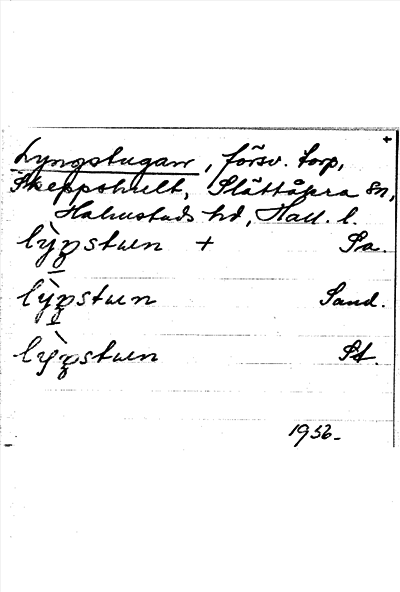 +
Lyngstugan, försv. torp,
Skeppshult, Slättåkra sn,
Halmstads hd, Hall. l.
lỳŋstuen + Sa.
lỳŋstuen Sand.
lỳŋstuen St.
1936